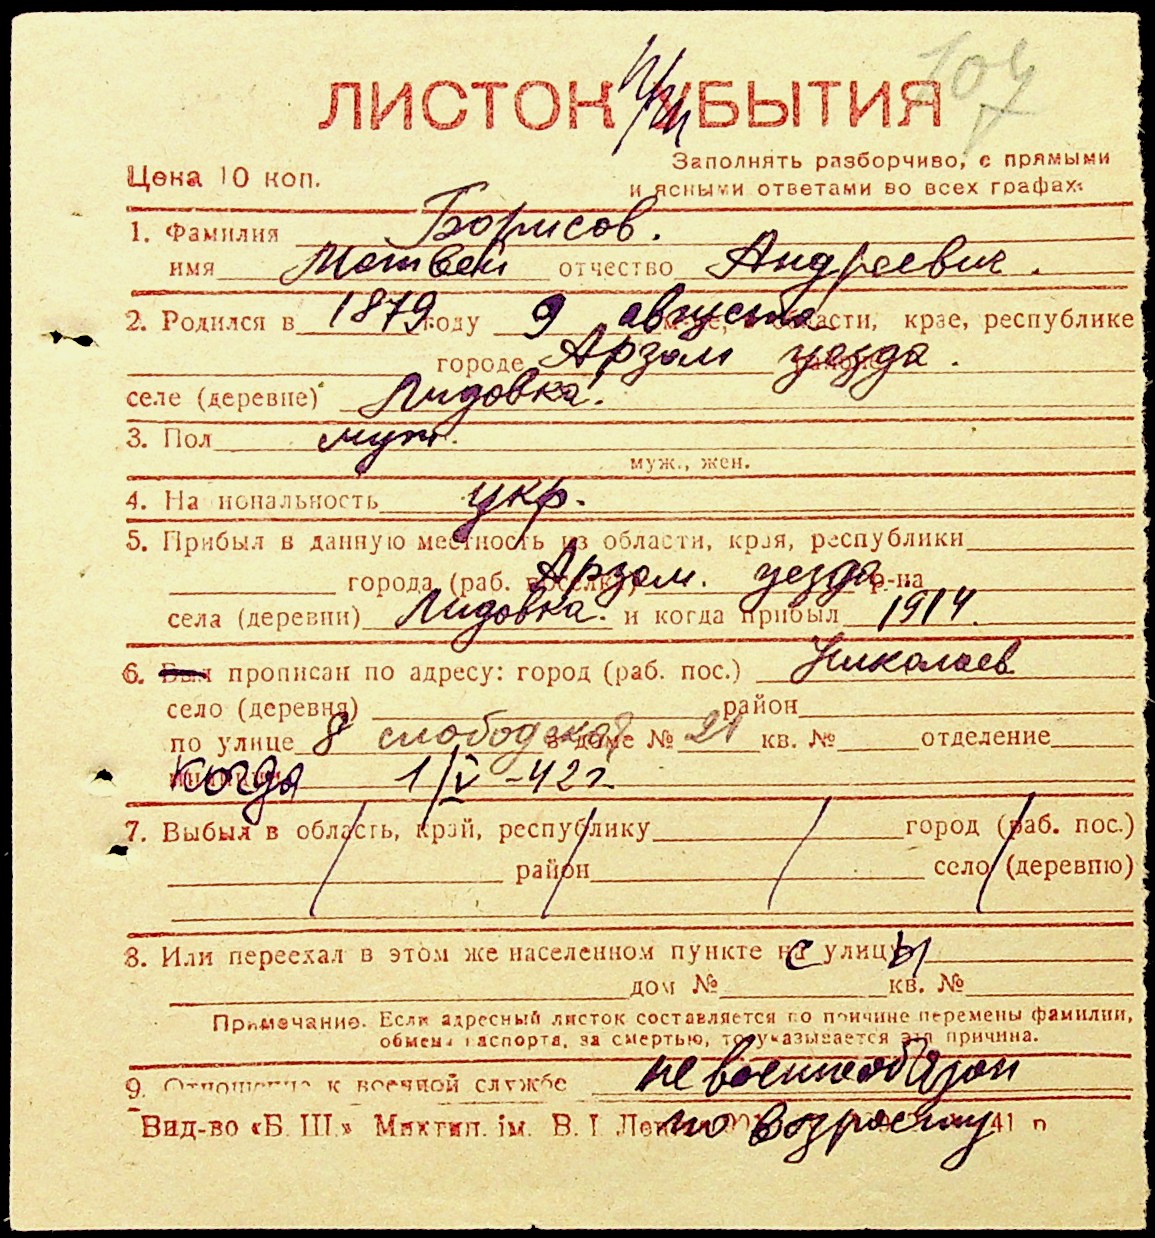 107
ЛИСТОК УБЫТИЯ
Цена 10 коп.
Заполнять разборчиво, с прямыми
и ясными ответами во всех графах.
1. Фамилия Борисов.
имя Матвей отчество Андреевич.
2. Родился в 1879 году 9 августа области, крае, республике
городе Арзам уезда.
селе (деревне) Лидовка.
3. Пол муж.
муж., жен.
4. Национальность укр.
5. Прибыл в данную местность из области, края, республики
города (раб. поселка) Арзам. уезда р-на
села (деревни) Лидовка. и когда прибыл 1914.
6. Был прописан по адресу: город (раб. пос.) Николаев
село (деревня) район
по улице 8 слободская в доме № 21 кв. № отделение
когда 1/IV-42 г.
7. Выбыл в область, край, республику город (раб. пос.)
район село (деревню)
8. Или переехал в этом же населенном пункте с улицы
дом № кв. №
Примечание. Если адресный листок составляется по причине перемены фамилии,
обмена паспорта, за смертью, то указывается эта причина.
9. Отношение к военной службе не военнообязан
по возрасту
Вид-во «Б. Ш.» Миктип. ім. В. І. Лен 41 р.